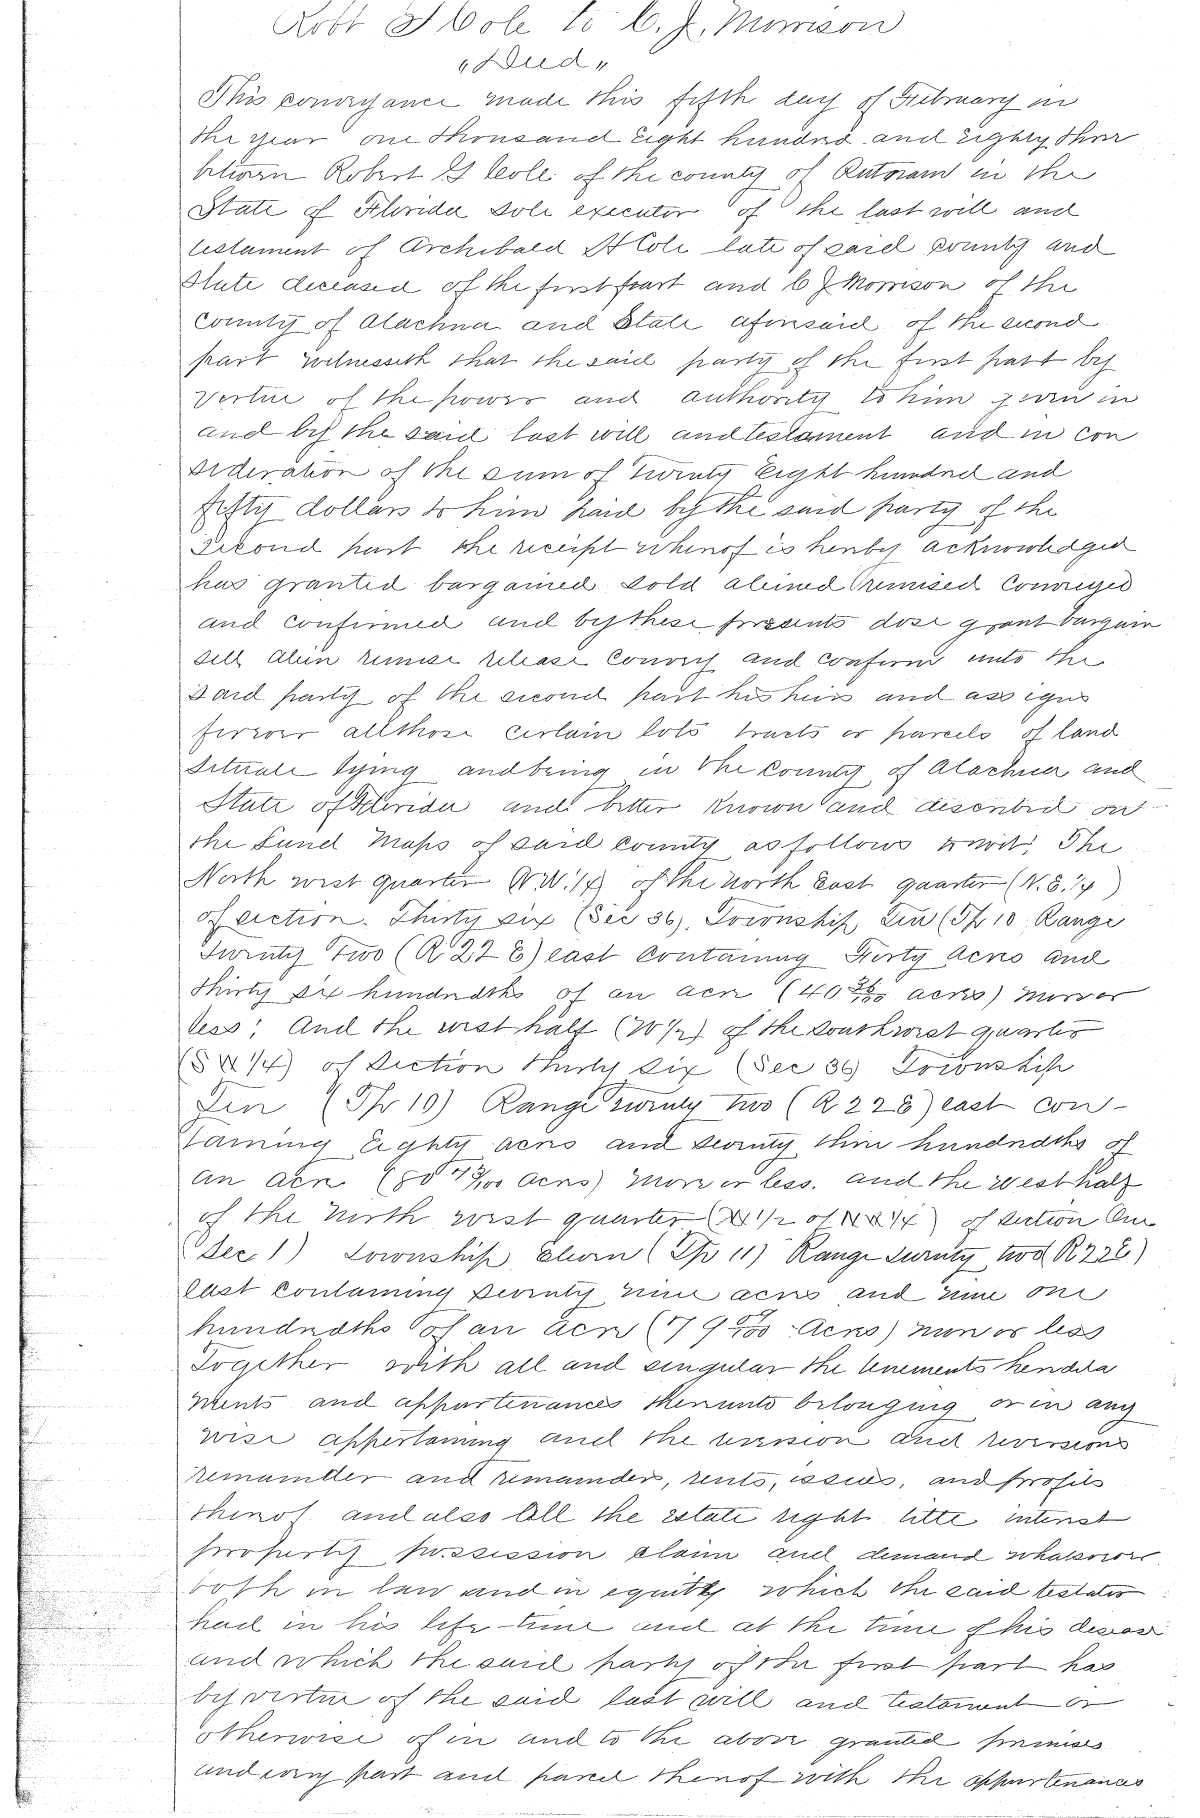 Robt G Cole to C. J. Morrison
"Deed"
This conveyance made this fifth day of February in
the year one thousand Eight hundred and Eighty three
between Robert G Cole of the county of Putnam in the
State of Florida sole executor of the last will and
testament of Archibald H Cole late of said county and
State deceased of the first part and C J Morrison of the
County of Alachua and State aforesaid of the second
part witnesseth that the said party of the first part by
vertue of the power and authority to him given in
and by the said last will and testament and in con
sideration of the sum of Twenty Eight hundred and
fifty dollars to him paid by the said party of the
Second part the receipt whereof is hereby acknowledged
has granted bargained sold aliened Remised Conveyed
and confirmed and by these presents dose grant bargain
sell alien remise release Convey and confirm unto the
said party of the second part his heirs and assigns
forever all those certain lots tracts or parcels of land
situate lying and being in the County of Alachua and
State of Florida and better known and described on
the Land Maps of said county as follows towit; The
North west quarter (N.W. 1/4) of the North East quarter (N. E. 1/4)
of section Thirty six (Sec 36), Township Ten (Tp 10, Range
Twenty Two (R 22 E) east containing Forty Acres and
thirty six hundredths of an acre (40 36/100 acres) more or
less; And the west half (W 1/2) of the southwest quarter
(S W 1/4) of section thirty six (Sec 36) Township
Ten (Tp 10) Range twenty two (R 22 E) east con-
taining Eighty acres and seventy three hundredths of
an acre (80 73/100 acres) more or less. and the west half
of the north west quarter (W 1/2 of N W 1/4) of section One
(Sec. 1) Township Eleven (Tp 11) Range twenty two (R 22 E)
East Containing seventy nine acres and nine one
hundredths of an acre (79 9/100 Acres) more or less
Together with all and singular the tenements heredita
ments and appurtenances thereunto belonging or in any
wise appertaining and the reversion and reversions
remainder and remainders, rents, issues, and profits
thereof and also all the estate right title interest
property possession claim and demand whatsoever
both in law and in equitty which the said testator
had in his life-time and at the time of his decease
and which the said party of the first part has
by vertue of the said last will and testament or
otherwise of in and to the above granted premises
and every part and parcel thereof with the appurtenances